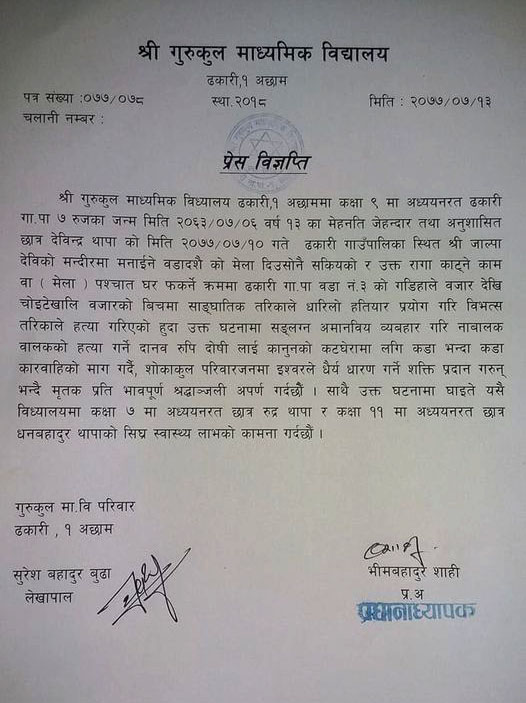 श्री गुरुकुल माध्यमिक विद्यालय
ढकारी,१ अछाम
पत्र संख्या :०७७/०७८ स्था.२०१८ मिति : २०७७/०७/१३
चलानी नम्बर :
प्रेस विज्ञप्ति
श्री गुरुकुल माध्यमिक विध्यालय ढकारी,१ अछाममा कक्षा ९ मा अध्ययनरत ढकारी
गा.पा ७ रुजका जन्म मिति २०६३/०७/०६ वर्ष १३ का मेहनति जेहन्दार तथा अनुशासित
छात्र देविन्द्र थापा को मिति २०७७/०७/१० गते ढकारी गाउँपालिका स्थित श्री जाल्पा
देविको मन्दीरमा मनाईने वडादशै को मेला दिउसोनै सकियको र उक्त रागा काट्ने काम
वा ( मेला ) पश्चात घर फकर्ने क्रममा ढकारी गा.पा वडा नं.३ को गडिहाले वजार देखि
चोइटेखालि वजारको बिचमा साङ्घातिक तरिकाले धारिलो हतियार प्रयोग गरि विभत्स
तरिकाले हत्या गरिएको हुदा उक्त घटनामा सङ्लग्न अमानविय व्यबहार गरि नाबालक
वालकको हत्या गर्ने दानव रुपि दोषी लाई कानुनको कटघेरामा लगि कडा भन्दा कडा
कारवाहिको माग गर्दै, शोकाकुल परिवारजनमा इश्वरले धैर्य धारण गर्ने शक्ति प्रदान गरुन्
भन्दै मृतक प्रति भावपूर्ण श्रद्धाञ्जली अपर्ण गर्दछौँ । साथै उक्त घटनामा घाइते यसै
विध्यालयमा कक्षा ७ मा अध्ययनरत छात्र रुद्र थापा र कक्षा ११ मा अध्ययनरत छात्र
धनबहादुर थापाको सिघ्र स्वास्थ्य लाभको कामना गर्दछौं ।
गुरुकुल मा.वि परिवार
ढकारी , १ अछाम
सुरेश बहादुर बुढा
लेखापाल
भीमबहादुर शाही
प्र.अ
प्रधानाध्यापक